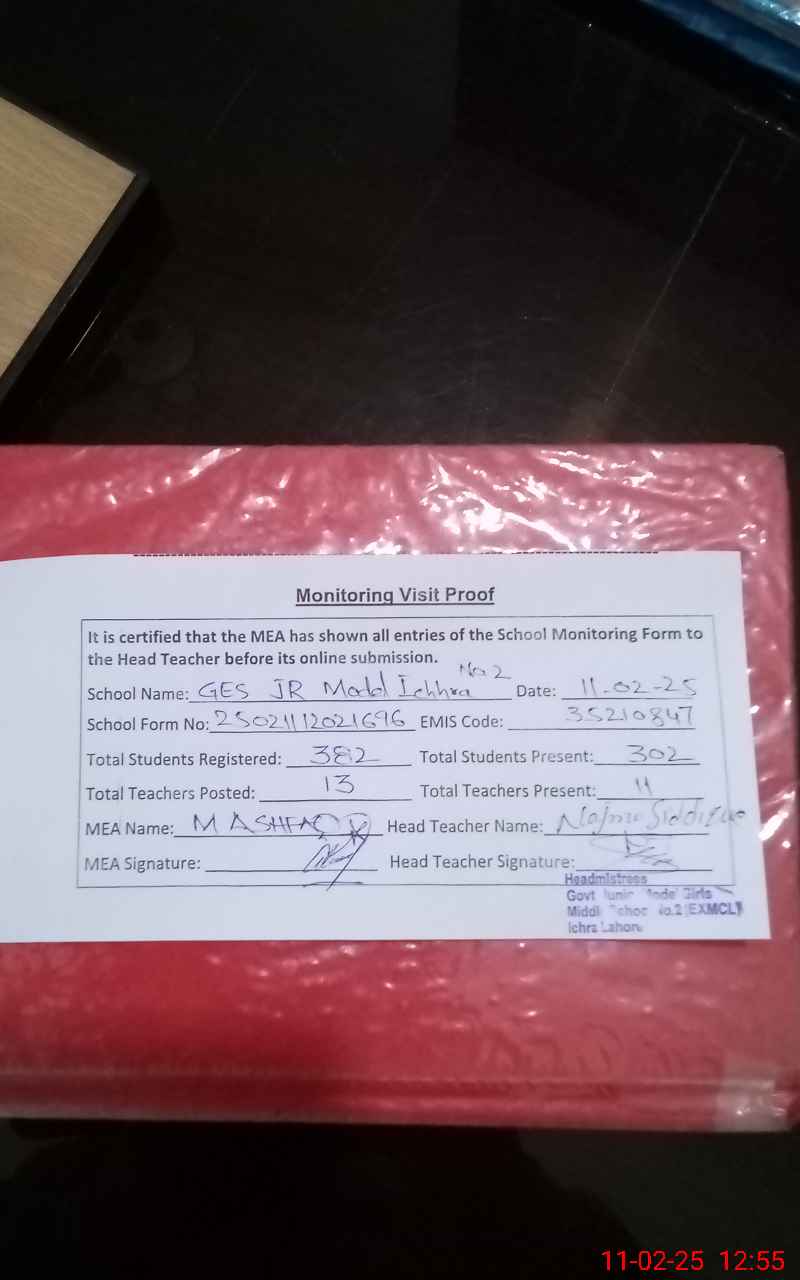 Monitoring Visit Proof
It is certified that the MEA has shown all entries of the School Monitoring Form to
the Head Teacher before its online submission.
School Name: GES JR Model Ichhra No.2 Date: 11-02-25
School Form No: 25021112021696 EMIS Code: 35210847
Total Students Registered: 382 Total Students Present: 302
Total Teachers Posted: 13 Total Teachers Present: 11
MEA Name: M ASHFAQ Head Teacher Name: Najma
MEA Signature: Head Teacher Signature:
Headmistress
Govt Girls
No.2 (EXMCL)
Ichra Lahore
11-02-25 12:55